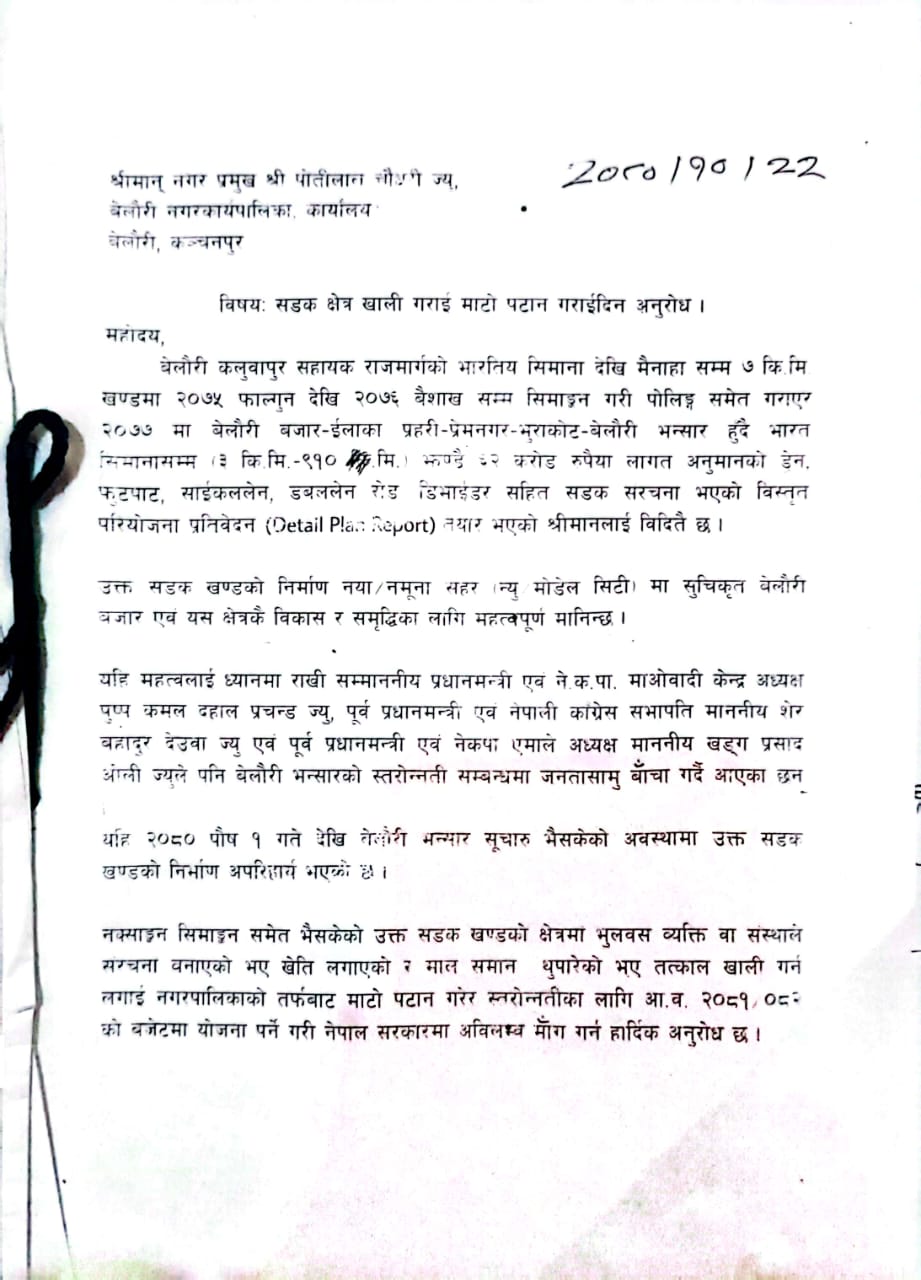 २०८०/१०/२२
श्रीमान् नगर प्रमुख श्री पोतीलाल चौधरी ज्यु,
बेलौरी नगरकार्यपालिका, कार्यालय
बेलौरी, कञ्चनपुर
विषय: सडक क्षेत्र खाली गराई माटो पटान गराईदिन अनुरोध ।
महोदय,
बेलौरी कलुवापुर सहायक राजमार्गको भारतिय सिमाना देखि मैनाहा सम्म ७ कि.मि
खण्डमा २०७५ फाल्गुन देखि २०७६ बैशाख सम्म सिमाङ्कन गरी पोलिङ्ग समेत गराएर
२०७७ मा बेलौरी बजार-ईलाका प्रहरी-प्रेमनगर-भुराकोट-बेलौरी भन्सार हुँदै भारत
सिमानासम्म (३ कि.मि.-९१० मि.) झण्डै करोड रुपैया लागत अनुमानको ड्रेन,
फुटपाट, साईकललेन, डबललेन रोड डिभाईडर सहित सडक संरचना भएको विस्तृत
परियोजना प्रतिवेदन (Detail Plan Report) तयार भएको श्रीमानलाई विदितै छ ।
उक्त सडक खण्डको निर्माण नयाँ/नमूना सहर (न्यु/मोडेल सिटी) मा सुचिकृत बेलौरी
बजार एवं यस क्षेत्रकै विकास र समृद्धिका लागि महत्वपूर्ण मानिन्छ ।
यहि महत्वलाई ध्यानमा राखी सम्माननीय प्रधानमन्त्री एवं ने.क.पा. माओवादी केन्द्र अध्यक्ष
पुष्प कमल दहाल प्रचन्ड ज्यु, पूर्व प्रधानमन्त्री एवं नेपाली कांग्रेस सभापति माननीय शेर
बहादुर देउवा ज्यु एवं पूर्व प्रधानमन्त्री एवं नेकपा एमाले अध्यक्ष माननीय खड्ग प्रसाद
ओली ज्युले पनि बेलौरी भन्सारको स्तरोन्नती सम्बन्धमा जनतासामु बाँचा गर्दै आएका छन्
।
यहि २०८० पौष १ गते देखि बेलौरी भन्सार सूचारु भैसकेको अवस्थामा उक्त सडक
खण्डको निर्माण अपरिहार्य भएको छ ।
नक्साङ्कन सिमाङ्कन समेत भैसकेको उक्त सडक खण्डको क्षेत्रमा भुलवस व्यक्ति वा संस्थाले
संरचना बनाएको भए खेति लगाएको र माल समान थुपारेको भए तत्काल खाली गर्न
लगाई नगरपालिकाको तर्फबाट माटो पटान गरेर स्तरोन्नतीका लागि आ.व. २०८१/०८२
को बजेटमा योजना पर्ने गरी नेपाल सरकारमा अविलम्ब माँग गर्न हार्दिक अनुरोध छ ।